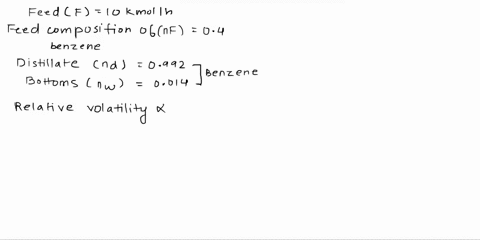 Feed (F) = 10 kmol/h
Feed composition of (nF) = 0.4
benzene
Distillate (nd) = 0.992
Bottoms (nw) = 0.014
] Benzene
Relative volatility α